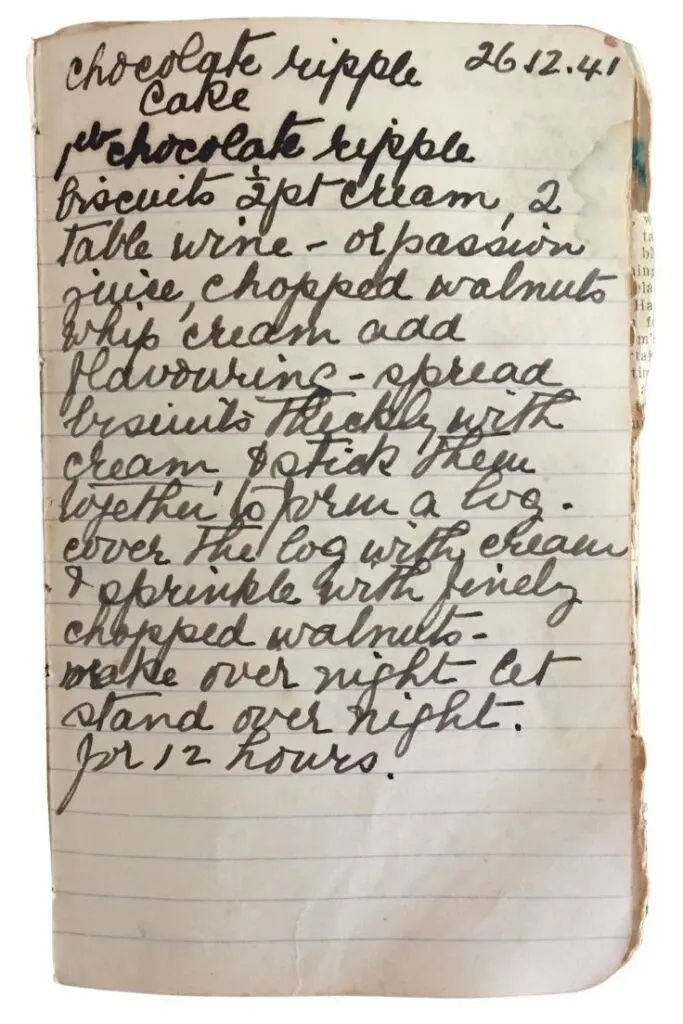 chocolate ripple 26.12.41
Cake
1 lb chocolate ripple
biscuits ½ pt cream, 2
table wine - or passion
juice, chopped walnuts
whip cream add
flavouring - spread
biscuits thickly with
cream, & stick them
together to form a log.
cover the log with cream
& sprinkle with finely
chopped walnuts-
make over night let
stand over night.
for 12 hours.